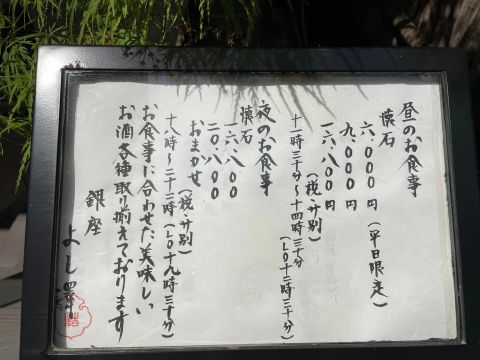 昼のお食事
懐石
六.〇〇〇円（平日限定）
九.〇〇〇円
一六.八〇〇円
（税・サ別）
十一時三十分〜十四時三十分
（LO十三時三十分）
夜のお食事
懐石
一六.八〇〇
二〇.八〇〇
おまかせ
（税・サ別）
十八時〜二十二時（LO十九時三十分）
お食事に合わせた美味しい
お酒各種取り揃えております
銀座
よし澤